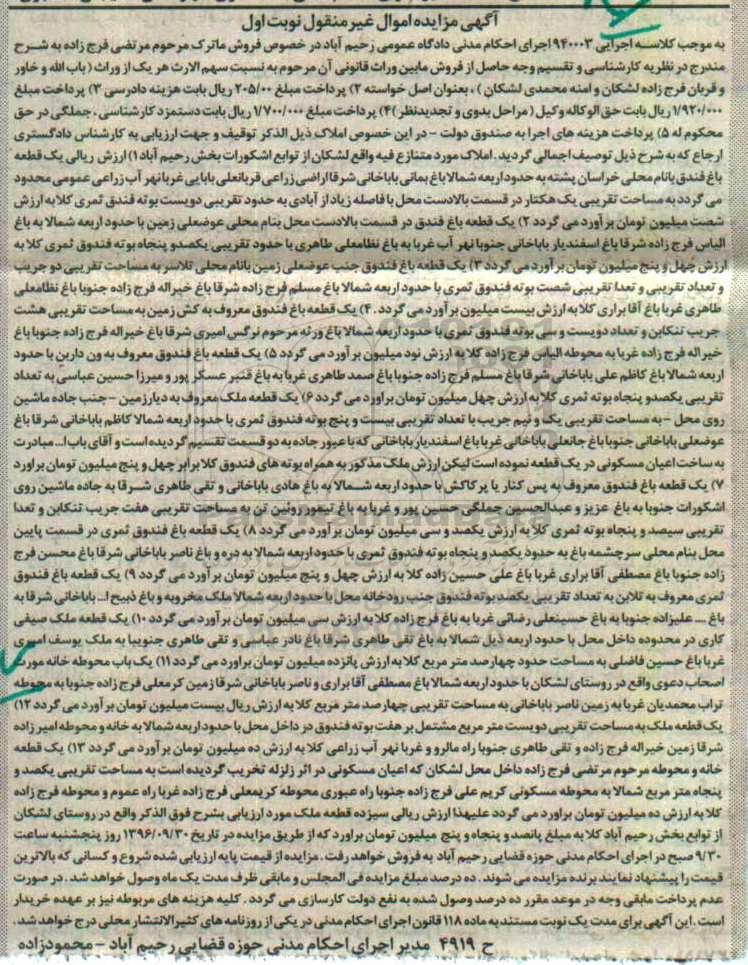 آگهی مزایده اموال غیر منقول نوبت اول
به موجب کلاسه اجرایی ۹۴۰۰۰۳ اجرای احکام مدنی دادگاه عمومی رحیم آباد در خصوص فروش ماترک مرحوم مرتضی فرج زاده به شرح
مندرج در نظریه کارشناسی و تقسیم وجه حاصل از فروش مابین وراث قانونی آن مرحوم به نسبت سهم الارث هر یک از وراث (باب الله و خاور
و قربان فرج زاده لشکان و امنه محمدی لشکان)، بعنوان اصل خواسته ۲) پرداخت مبلغ ۲۰۵/۰۰ ریال بابت هزینه دادرسی ۳) پرداخت مبلغ
۱/۹۲۰/۰۰۰ ریال بابت حق الوکاله وکیل (مراحل بدوی و تجدیدنظر) ۴) پرداخت مبلغ ۱/۷۰۰/۰۰۰ ریال بابت دستمزد کارشناسی، جملگی در حق
محکوم له ۵) پرداخت هزینه های اجرا به صندوق دولت - در این خصوص املاک ذیل الذکر توقیف و جهت ارزیابی به کارشناس دادگستری
ارجاع که به شرح ذیل توصیف اجمالی گردید. املاک مورد متنازع فیه واقع لشکان از توابع اشکورات بخش رحیم آباد ۱) ارزش ریالی یک قطعه
باغ فندق بانام محلی خراسان پشته به حدود اربعه شمالا باغ بمانی باباخانی شرقا اراضی زراعی قربانعلی بابایی غربا نهر آب زراعی عمومی محدود
می گردد به مساحت تقریبی یک هکتار در قسمت بالادست محل با فاصله زیاد از آبادی به حدود تقریبی دویست بوته فندق ثمری کلا به ارزش
شصت میلیون تومان بر آورد می گردد ۲) یک قطعه باغ فندق در قسمت بالادست محل بنام محلی عوضعلی زمین با حدود اربعه شمالا به باغ
الیاس فرج زاده شرقا باغ اسفندیار باباخانی جنوبا نهر آب غربا به باغ نظامعلی طاهری با حدود تقریبی یکصدو پنجاه بوته فندوق ثمری کلا به
ارزش چهل و پنج میلیون تومان بر آورد می گردد ۳) یک قطعه باغ فندوق جنب عوضعلی زمین بانام محلی تلاسر به مساحت تقریبی دو جریب
و تعداد تقریبی و تعدا تقریبی شصت بوته فندوق ثمری با حدود اربعه شمالا باغ مسلم فرج زاده شرقا باغ خیراله فرج زاده جنوبا باغ نظامعلی
طاهری غربا باغ آقا براری کلا به ارزش بیست میلیون بر آورد می گردد. ۴) یک قطعه باغ فندوق معروف به کش زمین به مساحت تقریبی هشت
جریب تنکابن و تعداد دویست و سی بوته فندوق ثمری با حدود اربعه شمالا باغ ورثه مرحوم نرگس امیری شرقا باغ خیراله فرج زاده جنوبا باغ
خیراله فرج زاده غربا به محوطه الیاس فرج زاده کلا به ارزش نود میلیون بر آورد می گردد ۵) یک قطعه باغ فندوق معروف به ون داربن با حدود
اربعه شمالا باغ کاظم علی باباخانی شرقا باغ مسلم فرج زاده جنوبا باغ صمد طاهری غربا به باغ قنبر عسکر پور و میرزا حسین عباسی به تعداد
تقریبی یکصدو پنجاه بوته ثمری کلا به ارزش چهل میلیون تومان براورد می گردد ۶) یک قطعه ملک معروف به دیارزمین - جنب جاده ماشین
روی محل - به مساحت تقریبی یک و نیم جریب با تعداد تقریبی بیست و پنج بوته فندوق ثمری با حدود اربعه شمالا کاظم باباخانی شرقا باغ
عوضعلی باباخانی جنوبا باغ جانعلی باباخانی غربا باغ اسفندیار باباخانی که با عبور جاده به دو قسمت تقسیم گردیده است و آقای باب ا... مبادرت
به ساخت اعیان مسکونی در یک قطعه نموده است لیکن ارزش ملک مذکور به همراه بوته های فندوق کلا برابر چهل و پنج میلیون تومان براورد
۷) یک قطعه باغ فندوق معروف به پس کنار یا پرکاکش با حدود اربعه شمالا به باغ هادی باباخانی و تقی طاهری شرقا به جاده ماشین روی
اشکورات جنوبا به باغ عزیز و عبدالحسین جملگی حسین پور و غربا به باغ تیمور روئین تن به مساحت تقریبی هفت جریب تنکابن و تعدا
تقریبی سیصد و پنجاه بوته ثمری کلا به ارزش یکصد و سی میلیون تومان بر آورد می گردد ۸) یک قطعه باغ فندوق ثمری در قسمت پایین
محل بنام محلی سرچشمه باغ به حدود یکصد و پنجاه بوته فندوق ثمری با حدود اربعه شمالا به دره و باغ ناصر باباخانی شرقا باغ محسن فرج
زاده جنوبا باغ مصطفی آقا براری غربا باغ علی حسین زاده کلا به ارزش چهل و پنج میلیون تومان بر آورد می گردد ۹) یک قطعه باغ فندوق
ثمری معروف به تلابن به تعداد تقریبی یکصد بوته فندوق جنب رودخانه محل با حدود اربعه شمالا ملک مخروبه و باغ ذبیح ا... باباخانی شرقا به
باغ ... علیزاده جنوبا به باغ حسینعلی رضائی غربا به باغ فرج زاده کلا به ارزش سی میلیون تومان بر آورد می گردد ۱۰) یک قطعه ملک صیفی
کاری در محدوده داخل محل با حدود اربعه ذیل شمالا به باغ تقی طاهری شرقا باغ نادر عباسی و تقی طاهری جنوبیا به ملک یوسف امیری
غربا باغ حسین فاضلی به مساحت حدود چهارصد متر مربع کلا به ارزش پانزده میلیون تومان براورد می گردد ۱۱) یک باب محوطه خانه مورث
اصحاب دعوی واقع در روستای لشکان با حدود اربعه شمالا باغ مصطفی آقا براری و ناصر باباخانی شرقا زمین کرمعلی فرج زاده جنوبا به محوطه
تراب محمدیان غربا به زمین ناصر باباخانی به مساحت تقریبی چهارصد متر مربع کلا به ارزش ریال بیست میلیون تومان بر آورد می گردد ۱۲)
یک قطعه ملک به مساحت تقریبی دویست متر مربع مشتمل بر هفت بوته فندوق در داخل محل با حدود اربعه شمالا به خانه و محوطه امیر زاده
شرقا زمین خیراله فرج زاده و تقی طاهری جنوبا راه مالرو و غربا نهر آب زراعی کلا به ارزش ده میلیون تومان بر آورد می گردد ۱۳) یک قطعه
خانه و محوطه مرحوم مرتضی فرج زاده داخل محل لشکان که اعیان مسکونی در اثر زلزله تخریب گردیده است به مساحت تقریبی یکصد و
پنجاه متر مربع شمالا به محوطه مسکونی کریم علی فرج زاده جنوبا راه عبوری محوطه کریمعلی فرج زاده غربا راه عموم و محوطه فرج زاده
کلا به ارزش ده میلیون تومان براورد می گردد علیهذا ارزش ریالی سیزده قطعه ملک مورد ارزیابی بشرح فوق الذکر واقع در روستای لشکان
از توابع بخش رحیم آباد کلا به مبلغ پانصد و پنجاه و پنج میلیون تومان براورد که از طریق مزایده در تاریخ ۱۳۹۶/۰۹/۳۰ روز پنجشنبه ساعت
۹/۳۰ صبح در اجرای احکام مدنی حوزه قضایی رحیم آباد به فروش خواهد رفت. مزایده از قیمت پایه ارزیابی شده شروع و کسانی که بالاترین
قیمت را پیشنهاد نمایند برنده مزایده می شوند. ده درصد مبلغ مزایده فی المجلس و مابقی ظرف مدت یک ماه وصول خواهد شد. در صورت
عدم پرداخت مابقی وجه در موعد مقرر ده درصد وصول شده به نفع دولت کارسازی می گردد. کلیه هزینه های مربوطه نیز بر عهده خریدار
است. این آگهی برای مدت یک نوبت مستند به ماده ۱۱۸ قانون اجرای احکام مدنی در یکی از روزنامه های کثیرالانتشار محلی درج خواهد شد.
ح ۴۹۱۹ مدیر اجرای احکام مدنی حوزه قضایی رحیم آباد - محمودزاده